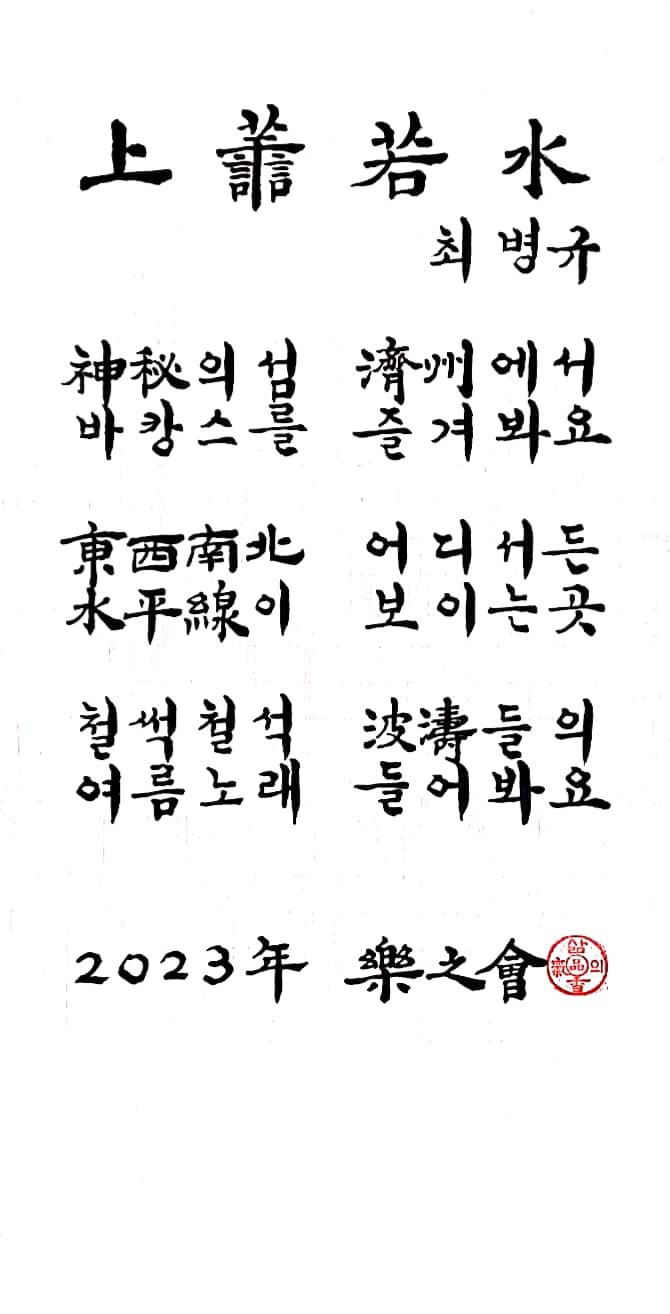 上譱若水
최병규
神秘의섬 濟州에서
바캉스를 즐겨봐요
東西南北 어디서든
水平線이 보이는곳
철썩철석 波濤들의
여름노래 들어봐요
2023年 樂之會